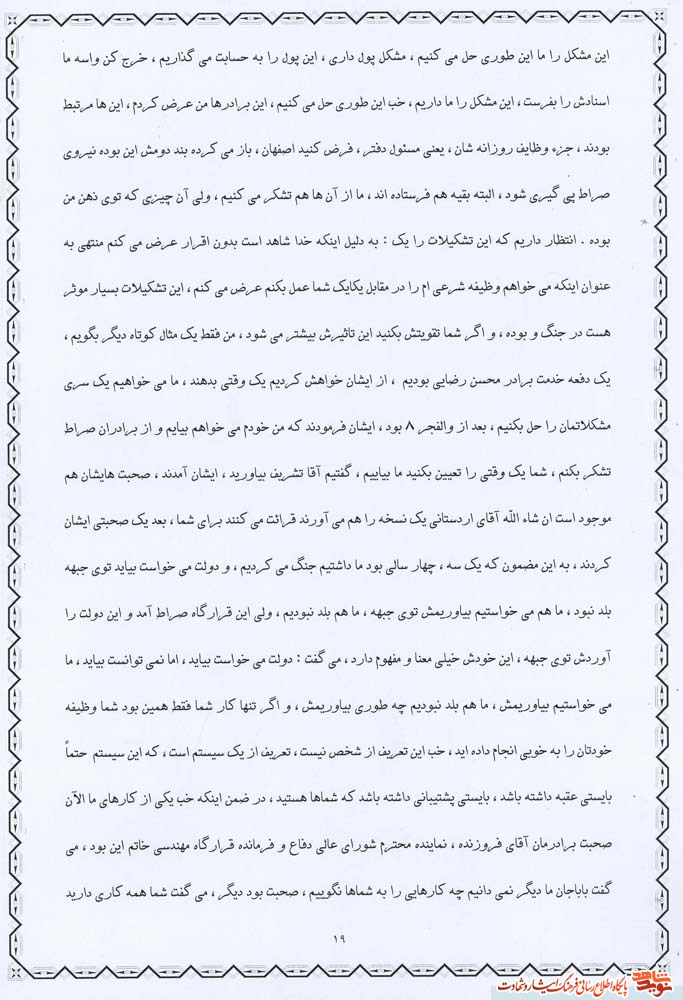 این مشکل را ما این طوری حل می کنیم ، مشکل پول داری ، این پول را به حسابت می گذاریم ، خرج کن واسه ما
اسنادش را بفرست ، این مشکل را ما داریم ، خب این طوری حل می کنیم ، این برادرها من عرض کردم ، این ها مرتبط
بودند ، جزء وظایف روزانه شان ، یعنی مسئول دفتر ، فرض کنید اصفهان ، باز می کرده بند دومش این بوده نیروی
صراط پی گیری شود ، البته بقیه هم فرستاده اند ، ما از آن ها هم تشکر می کنیم ، ولی آن چیزی که توی ذهن من
بوده . انتظار داریم که این تشکیلات را یک : به دلیل اینکه خدا شاهد است بدون اقرار عرض می کنم منتهی به
عنوان اینکه می خواهم وظیفه شرعی ام را در مقابل یکایک شما عمل بکنم عرض می کنم ، این تشکیلات بسیار موثر
هست در جنگ و بوده ، و اگر شما تقویتش بکنید این تاثیرش بیشتر می شود ، من فقط یک مثال کوتاه دیگر بگویم ،
یک دفعه خدمت برادر محسن رضایی بودیم ، از ایشان خواهش کردیم یک وقتی بدهند ، ما می خواهیم یک سری
مشکلاتمان را حل بکنیم ، بعد از والفجر ۸ بود ، ایشان فرمودند که من خودم می خواهم بیایم و از برادران صراط
تشکر بکنم ، شما یک وقتی را تعیین بکنید ما بیاییم ، گفتیم آقا تشریف بیاورید ، ایشان آمدند ، صحبت هایشان هم
موجود است ان شاء اللّه آقای اردستانی یک نسخه را هم می آورند قرائت می کنند برای شما ، بعد یک صحبتی ایشان
کردند ، به این مضمون که یک سه ، چهار سالی بود ما داشتیم جنگ می کردیم ، و دولت می خواست بیاید توی جبهه
بلد نبود ، ما هم می خواستیم بیاوریمش توی جبهه ، ما هم بلد نبودیم ، ولی این قرارگاه صراط آمد و این دولت را
آوردش توی جبهه ، این خودش خیلی معنا و مفهوم دارد ، می گفت : دولت می خواست بیاید ، اما نمی توانست بیاید ، ما
می خواستیم بیاوریمش ، ما هم بلد نبودیم چه طوری بیاوریمش ، و اگر تنها کار شما فقط همین بود شما وظیفه
خودتان را به خوبی انجام داده اید ، خب این تعریف از شخص نیست ، تعریف از یک سیستم است ، که این سیستم حتماً
بایستی عقبه داشته باشد ، بایستی پشتیبانی داشته باشد که شماها هستید ، در ضمن اینکه خب یکی از کارهای ما الآن
صحبت برادرمان آقای فروزنده ، نماینده محترم شورای عالی دفاع و فرمانده قرارگاه مهندسی خاتم این بود ، می
گفت باباجان ما دیگر نمی دانیم چه کارهایی را به شماها نگوییم ، صحبت بود دیگر ، می گفت شما همه کاری دارید
۱۹
نوید شاهد
پایگاه اطلاع رسانی فرهنگ ایثار و شهادت